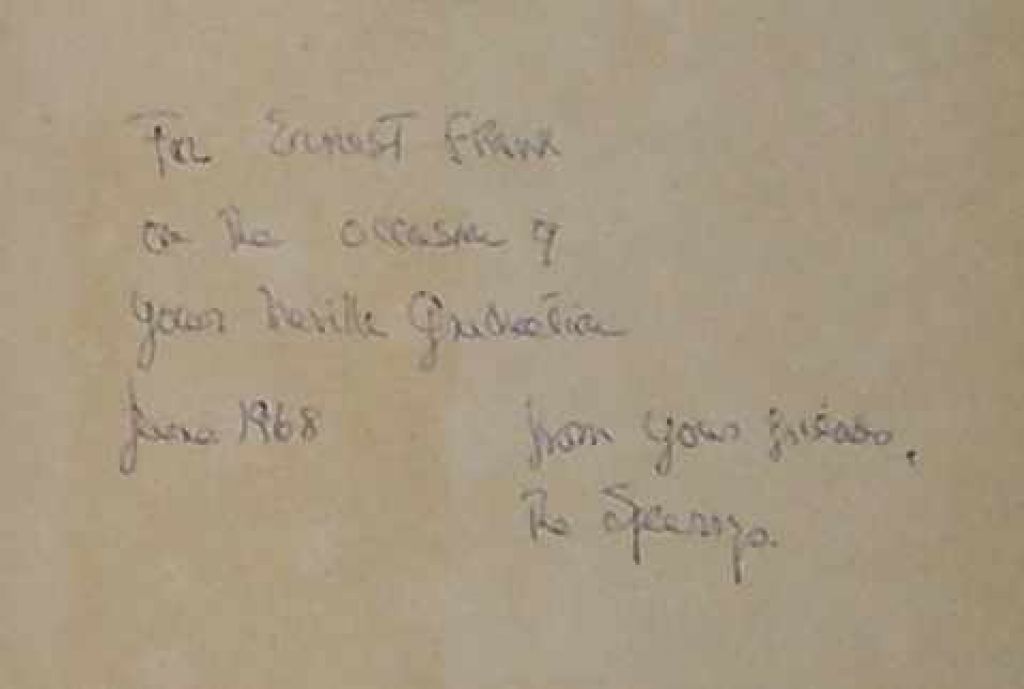 For Ernest Frank
on the occasion of
your Graduation
June 1968
from your friends,
The